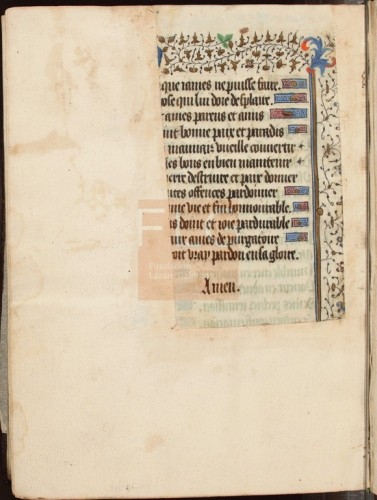 que iames ne puisse faire.
ose qui lui doie desplaire.
ames parens et amis
int bonne paix et paradis
mauuair vueille conuertir
les bons en bien maintenir
erre destruire et paix donner
utes offences pardonner
nne vie et fin honnourable.
is doint et ioie pardurable
aux ames de purgatoire
oit vray pardon en sa gloire.
Amen.